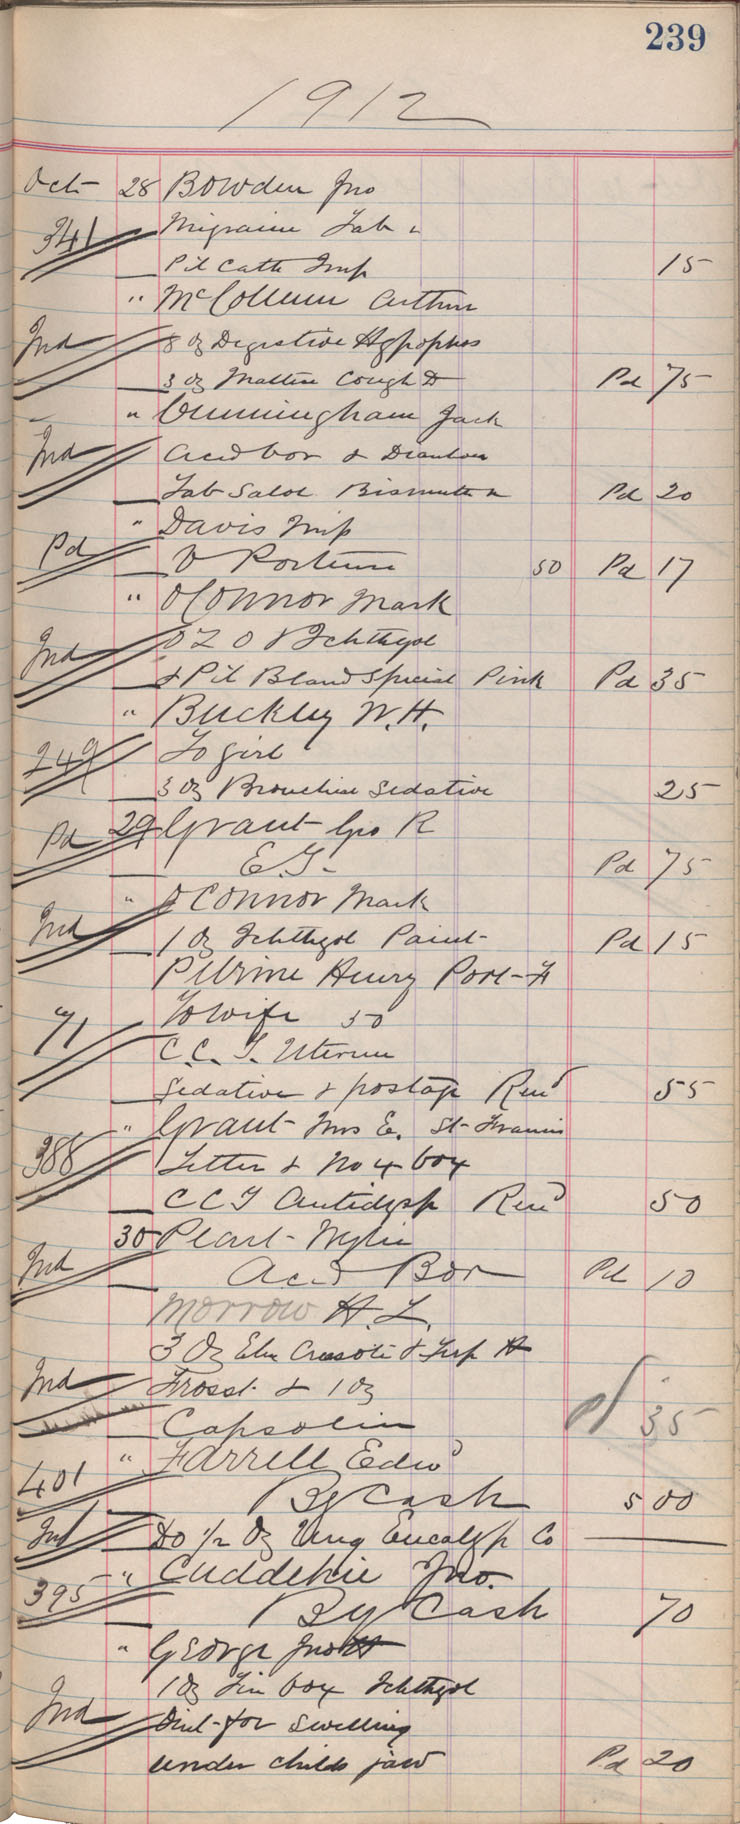 239
1912
Oct 28 Bowden Jno
341 Migraine Tab
Pil Cath Imp 15
" McCollum Arthur
Ind 8 oz Digestive Hypophos
3 oz Maltine Cough D Pd 75
" Cunningham Jack
Ind Acid bor &
Tab Salol Bismuth Pd 20
" Davis Imp
Pd 50 Pd 17
" OConnor Mark
Ind O Z O & Ichthyol
& Pil Blaud Special Pink Pd 35
" Buckley W. H.
249 To girl
3 oz Bronchial Sedative 25
Pd 29 Grant Geo R
E.G. Pd 75
" OConnor Mark
Ind 1 oz Ichthyol Paint Pd 15
Henry
71 To wife 50
C.C. T. Uterine
Sedative & postage Rend 55
" Grant Mrs E. St Francis
388 Letter & No 4 box
C C T Rend 50
30 Pearl Wylie
Ind Acid Bor Pd 10
Morrow H. L.
3 Oz Elix & H
Ind Frosst & 1 oz
Capsolin pd 35
" Farrell Edwd
401 By Cash 5 00
Ind Do 1/2 Oz Ung Eucalyp Co
" Cuddehie Jno.
395 By Cash 70
" George Jno
1 oz Tin box Ichthyol
Ind Oint for Swelling
under childs jaw Pd 20